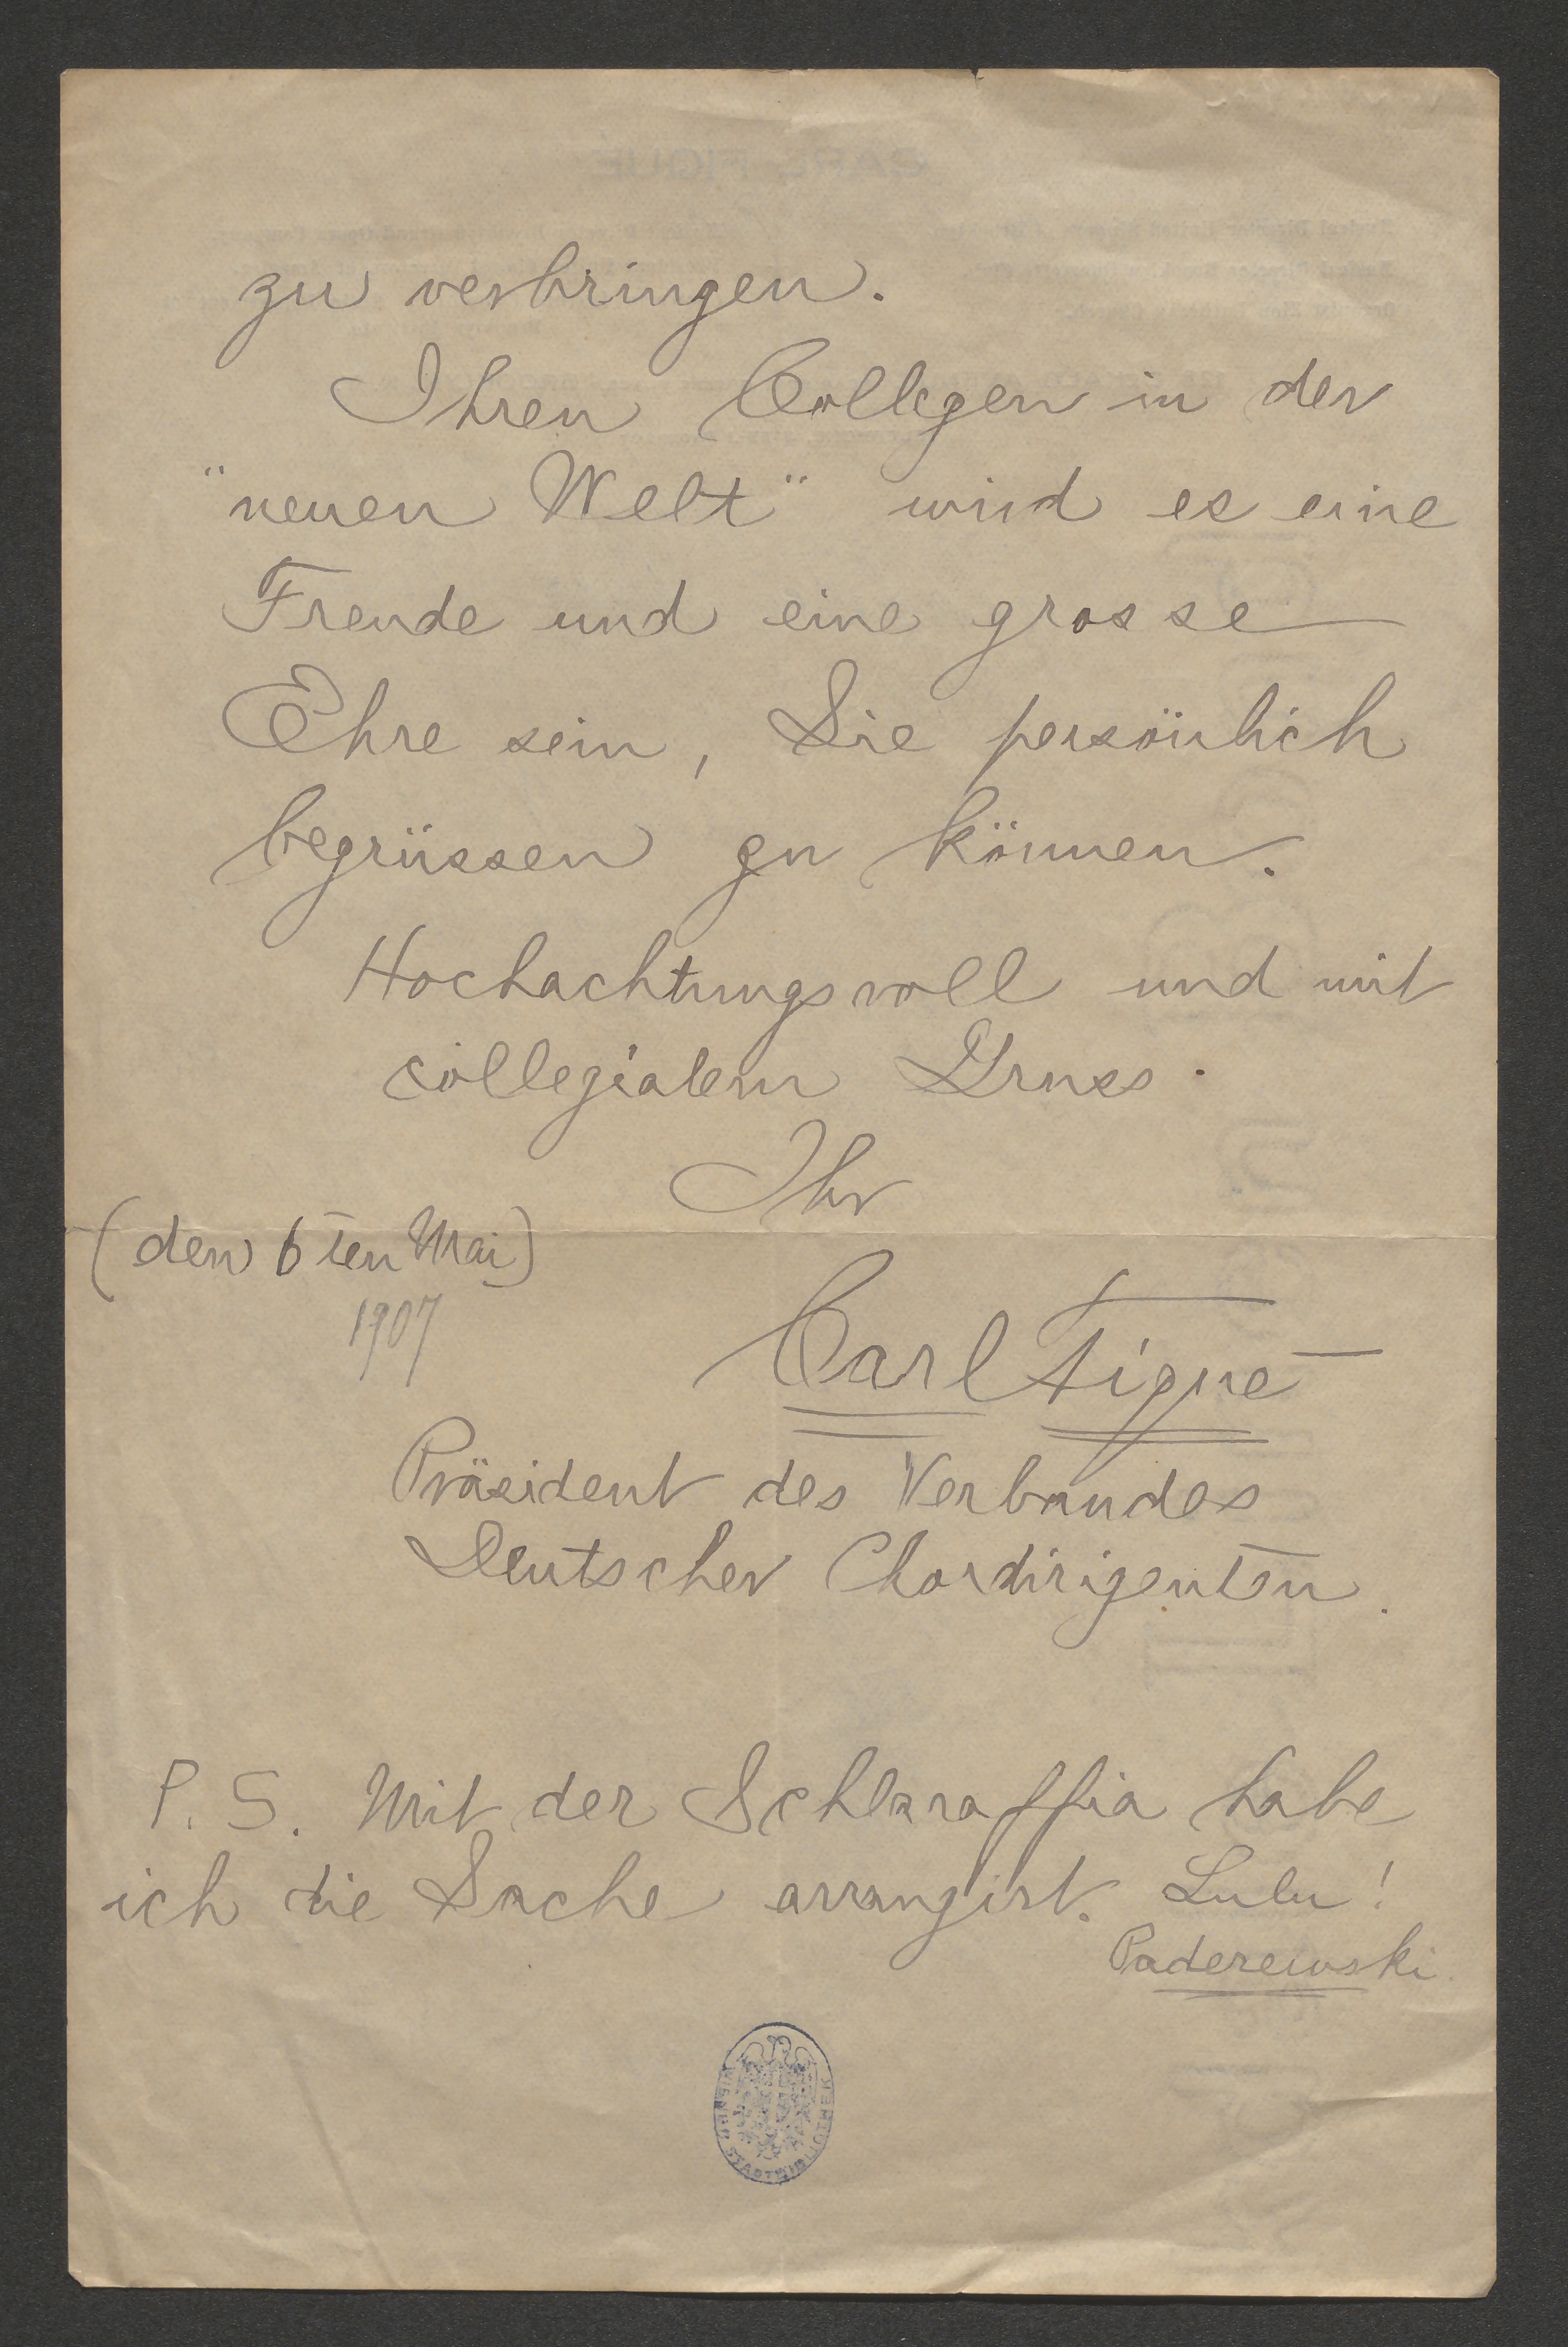 zu verbringen.
Ihren Collegen in der
"neuen Welt" wird es eine
Freude und eine grosse
Ehre sein, Sie persönlich
begrüssen zu können.
Hochachtungsvoll und mit
collegialem Gruss.
Ihr
(den 6ten Mai)
1907
Carl Figué
Präsident des Verbandes
Deutscher Chordirigenten.
P.S. Mit der Schlaraffia habe
ich die Sache arrangirt. Lulu!
Paderewski.
WIENER STADTBIBLIOTHEK
CARL FIGUÉ